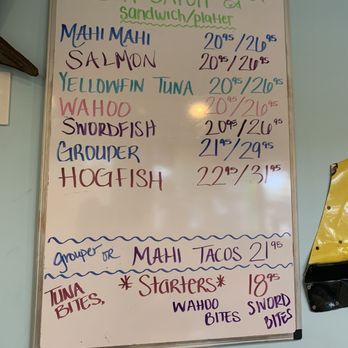 sandwich/platter
MAHI MAHI 20⁹⁵/26⁹⁵
SALMON 20⁹⁵/26⁹⁵
YELLOWFIN TUNA 20⁹⁵/26⁹⁵
WAHOO 20⁹⁵/26⁹⁵
SWORDFISH 20⁹⁵/26⁹⁵
GROUPER 21⁹⁵/29⁹⁵
HOGFISH 22⁹⁵/31⁹⁵
grouper or MAHI TACOS 21⁹⁵
*Starters* 18⁹⁵
TUNA BITES, WAHOO BITES SWORD BITES